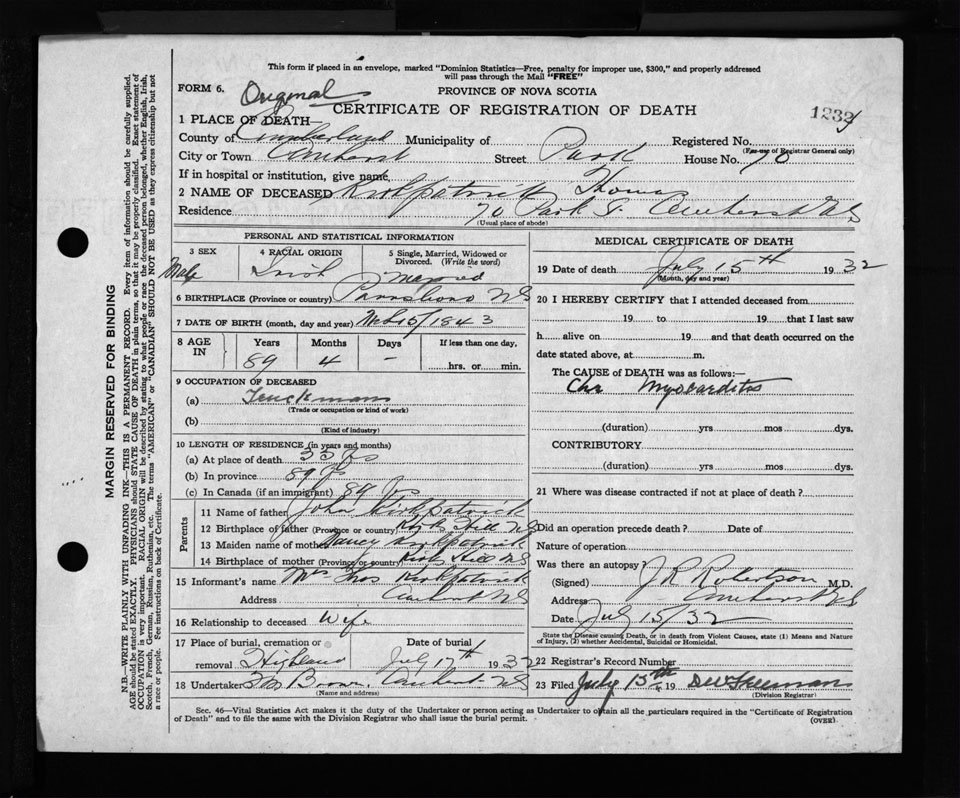 This form if placed in an envelope, marked "Dominion Statistics—Free, penalty for improper use, $300," and properly addressed
will pass through the Mail "FREE"
FORM 6.
Original
PROVINCE OF NOVA SCOTIA
CERTIFICATE OF REGISTRATION OF DEATH
1 PLACE OF DEATH—
County of Cumberland Municipality of Registered No.
(For use of Registrar General only)
City or Town Amherst Street Park House No. 70
If in hospital or institution, give name
2 NAME OF DECEASED Kirkpatrick Thomas
Residence 70 Park St. Amherst NS
(Usual place of abode)
PERSONAL AND STATISTICAL INFORMATION
3 SEX 4 RACIAL ORIGIN 5 Single, Married, Widowed or Divorced. (Write the word)
Male Irish Married
6 BIRTHPLACE (Province or country) Parrsboro NS
7 DATE OF BIRTH (month, day and year) 1843
8 AGE IN Years Months Days If less than one day,
89 4 - hrs. or min.
9 OCCUPATION OF DECEASED
(a) Truckman
(Trade or occupation or kind of work)
(b)
(Kind of industry)
10 LENGTH OF RESIDENCE (in years and months)
(a) At place of death
(b) In province 89
(c) In Canada (if an immigrant) 89
Parents
11 Name of father John Kirkpatrick
12 Birthplace of father (Province or country) Kirks Hill NS
13 Maiden name of mother Nancy Kirkpatrick
14 Birthplace of mother (Province or country) Kirks Hill NS
15 Informant's name Mrs Thos Kirkpatrick
Address Amherst NS
16 Relationship to deceased Wife
17 Place of burial, cremation or Date of burial
removal Highland July 17th 1932
18 Undertaker Brown, Amherst NS
(Name and address)
MEDICAL CERTIFICATE OF DEATH
19 Date of death July 15th 1932
(Month, day and year)
20 I HEREBY CERTIFY that I attended deceased from
19 to 19 that I last saw
h alive on 19 and that death occurred on the
date stated above, at m.
The CAUSE of DEATH was as follows:—
Chr Myocarditis
(duration) yrs mos dys.
CONTRIBUTORY
(duration) yrs mos dys.
21 Where was disease contracted if not at place of death?
Did an operation precede death? Date of
Nature of operation
Was there an autopsy?
(Signed) J R Robertson M.D.
Address Amherst NS
Date July 15/32
State the Disease causing Death, or in death from Violent Causes, state (1) Means and Nature
of Injury, (2) whether Accidental, Suicidal or Homicidal.
22 Registrar's Record Number
23 Filed July 15th 19
(Division Registrar)
Sec. 46—Vital Statistics Act makes it the duty of the Undertaker or person acting as Undertaker to obtain all the particulars required in the "Certificate of Registration
of Death" and to file the same with the Division Registrar who shall issue the burial permit.
(OVER)
MARGIN RESERVED FOR BINDING
N.B.—WRITE PLAINLY WITH UNFADING INK—THIS IS A PERMANENT RECORD. Every item of information should be carefully supplied.
AGE should be stated EXACTLY. PHYSICIANS should STATE CAUSE OF DEATH in plain terms, so that it may be properly classified. Exact statement of
OCCUPATION is very important. RACIAL ORIGIN will be described by stating to what people or race the deceased person belonged, whether English, Irish,
Scotch, French, German, Russian, Ruthenian, etc. The terms "AMERICAN" or "CANADIAN" SHOULD NOT BE USED as they express citizenship but not
a race or people. See instructions on back of Certificate.